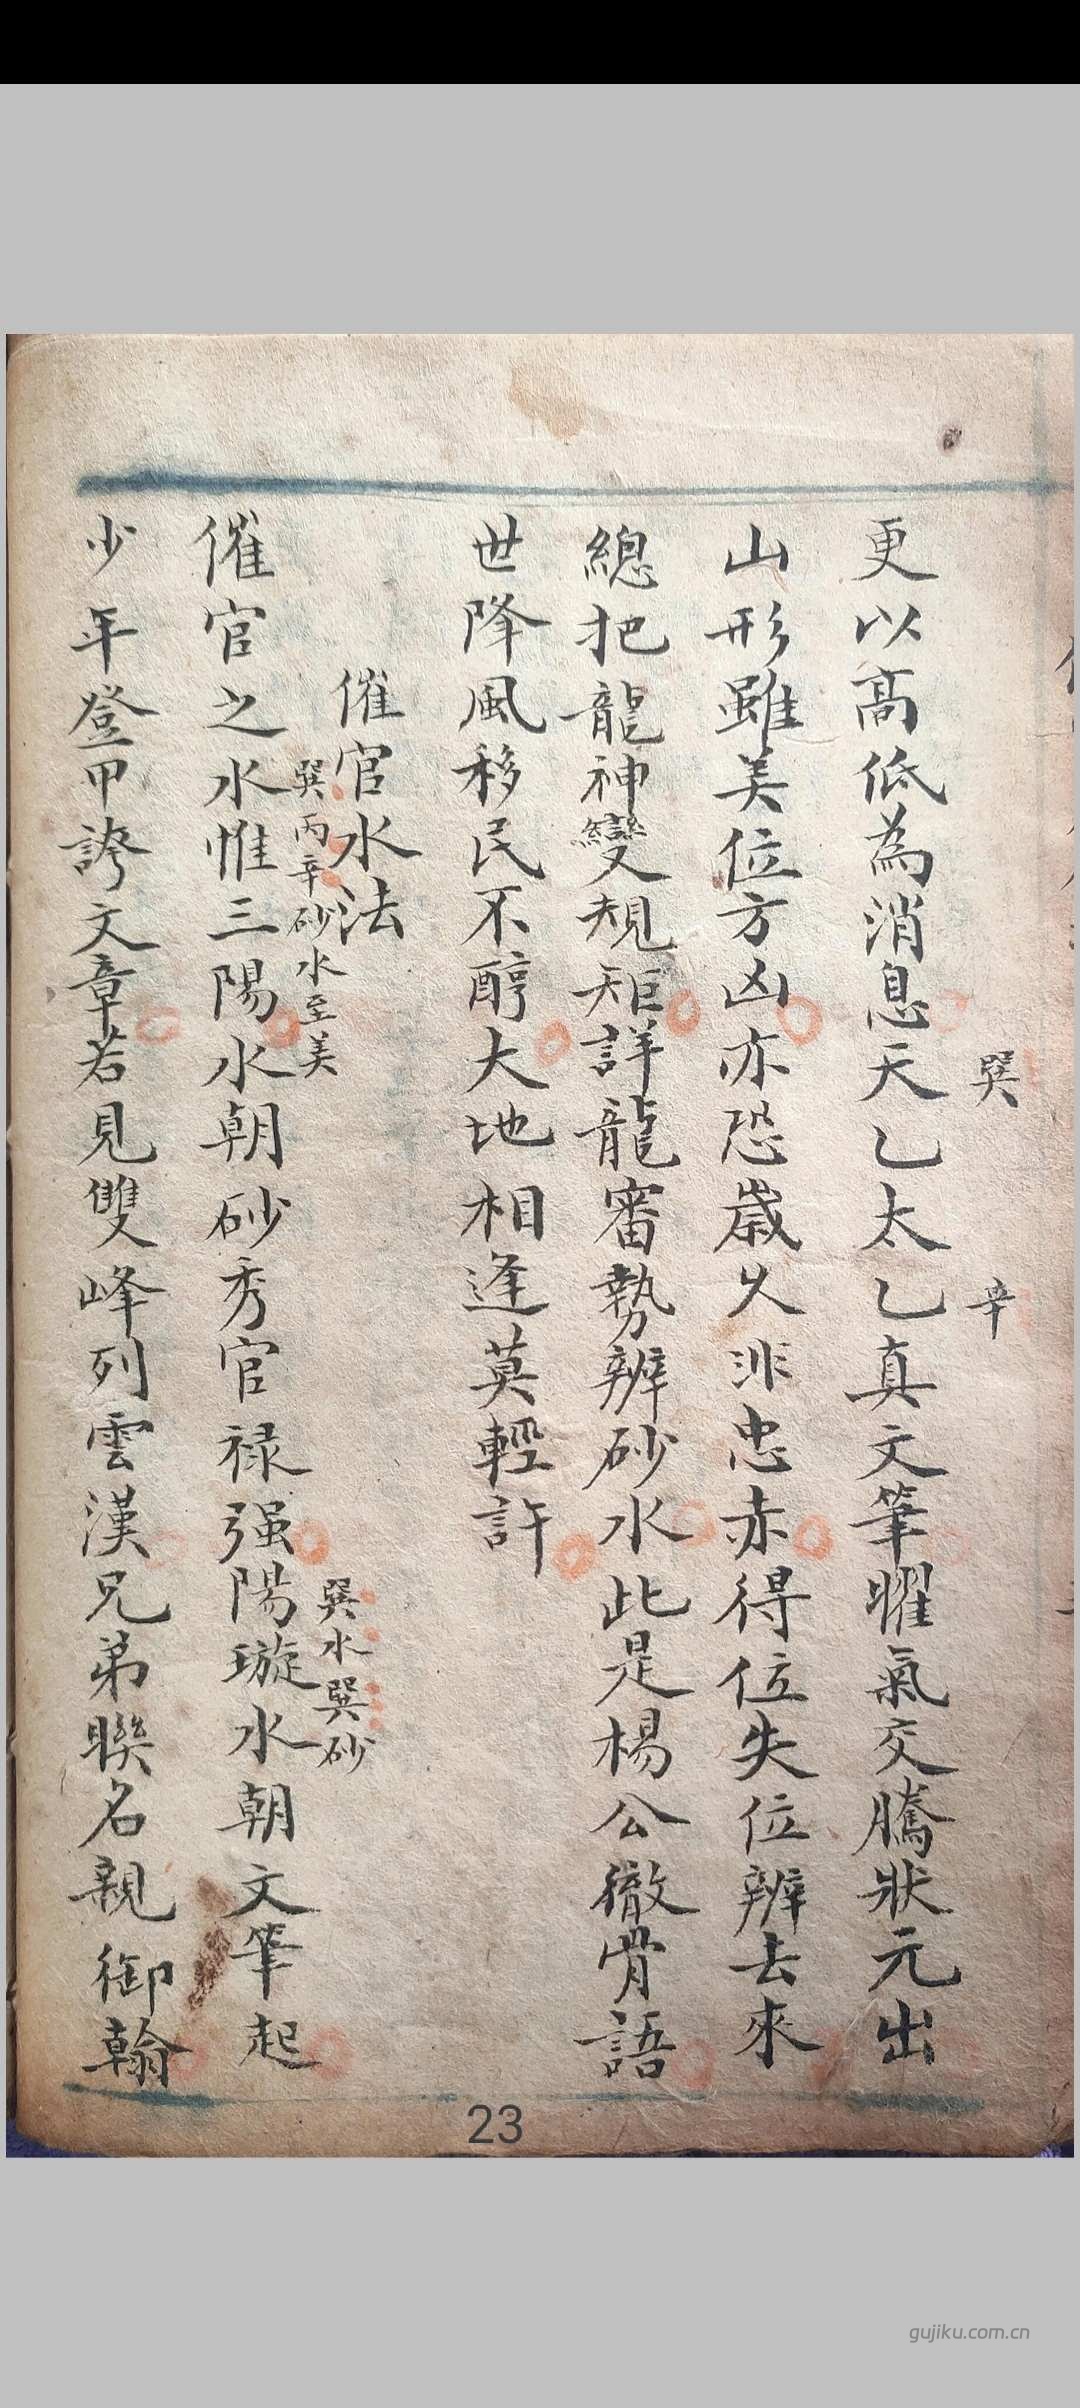 更以高低為消息天乙太乙真文筆曜氣交騰狀元出
巽
辛
山形雖美位方凶亦恐歲久非忠赤得位失位辨去來
總把龍神變規矩詳龍審勢辨砂水此是楊公徹骨語
世降風移民不醇大地相逢莫輕許
催官水法
巽丙辛砂水至美
巽水巽砂
催官之水惟三陽水朝砂秀官禄强陽璇水朝文筆起
少年登甲誇文章若見雙峰列雲漢兄弟聯名親御翰
23
gujiku.com.cn